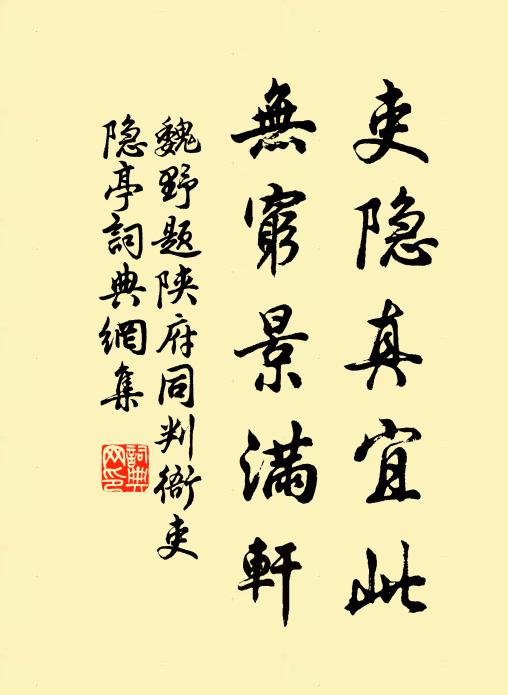 吏隐真宜此
無窮景满軒
魏野题陕府同判衙吏
隐亭詞典網集
詞典網印